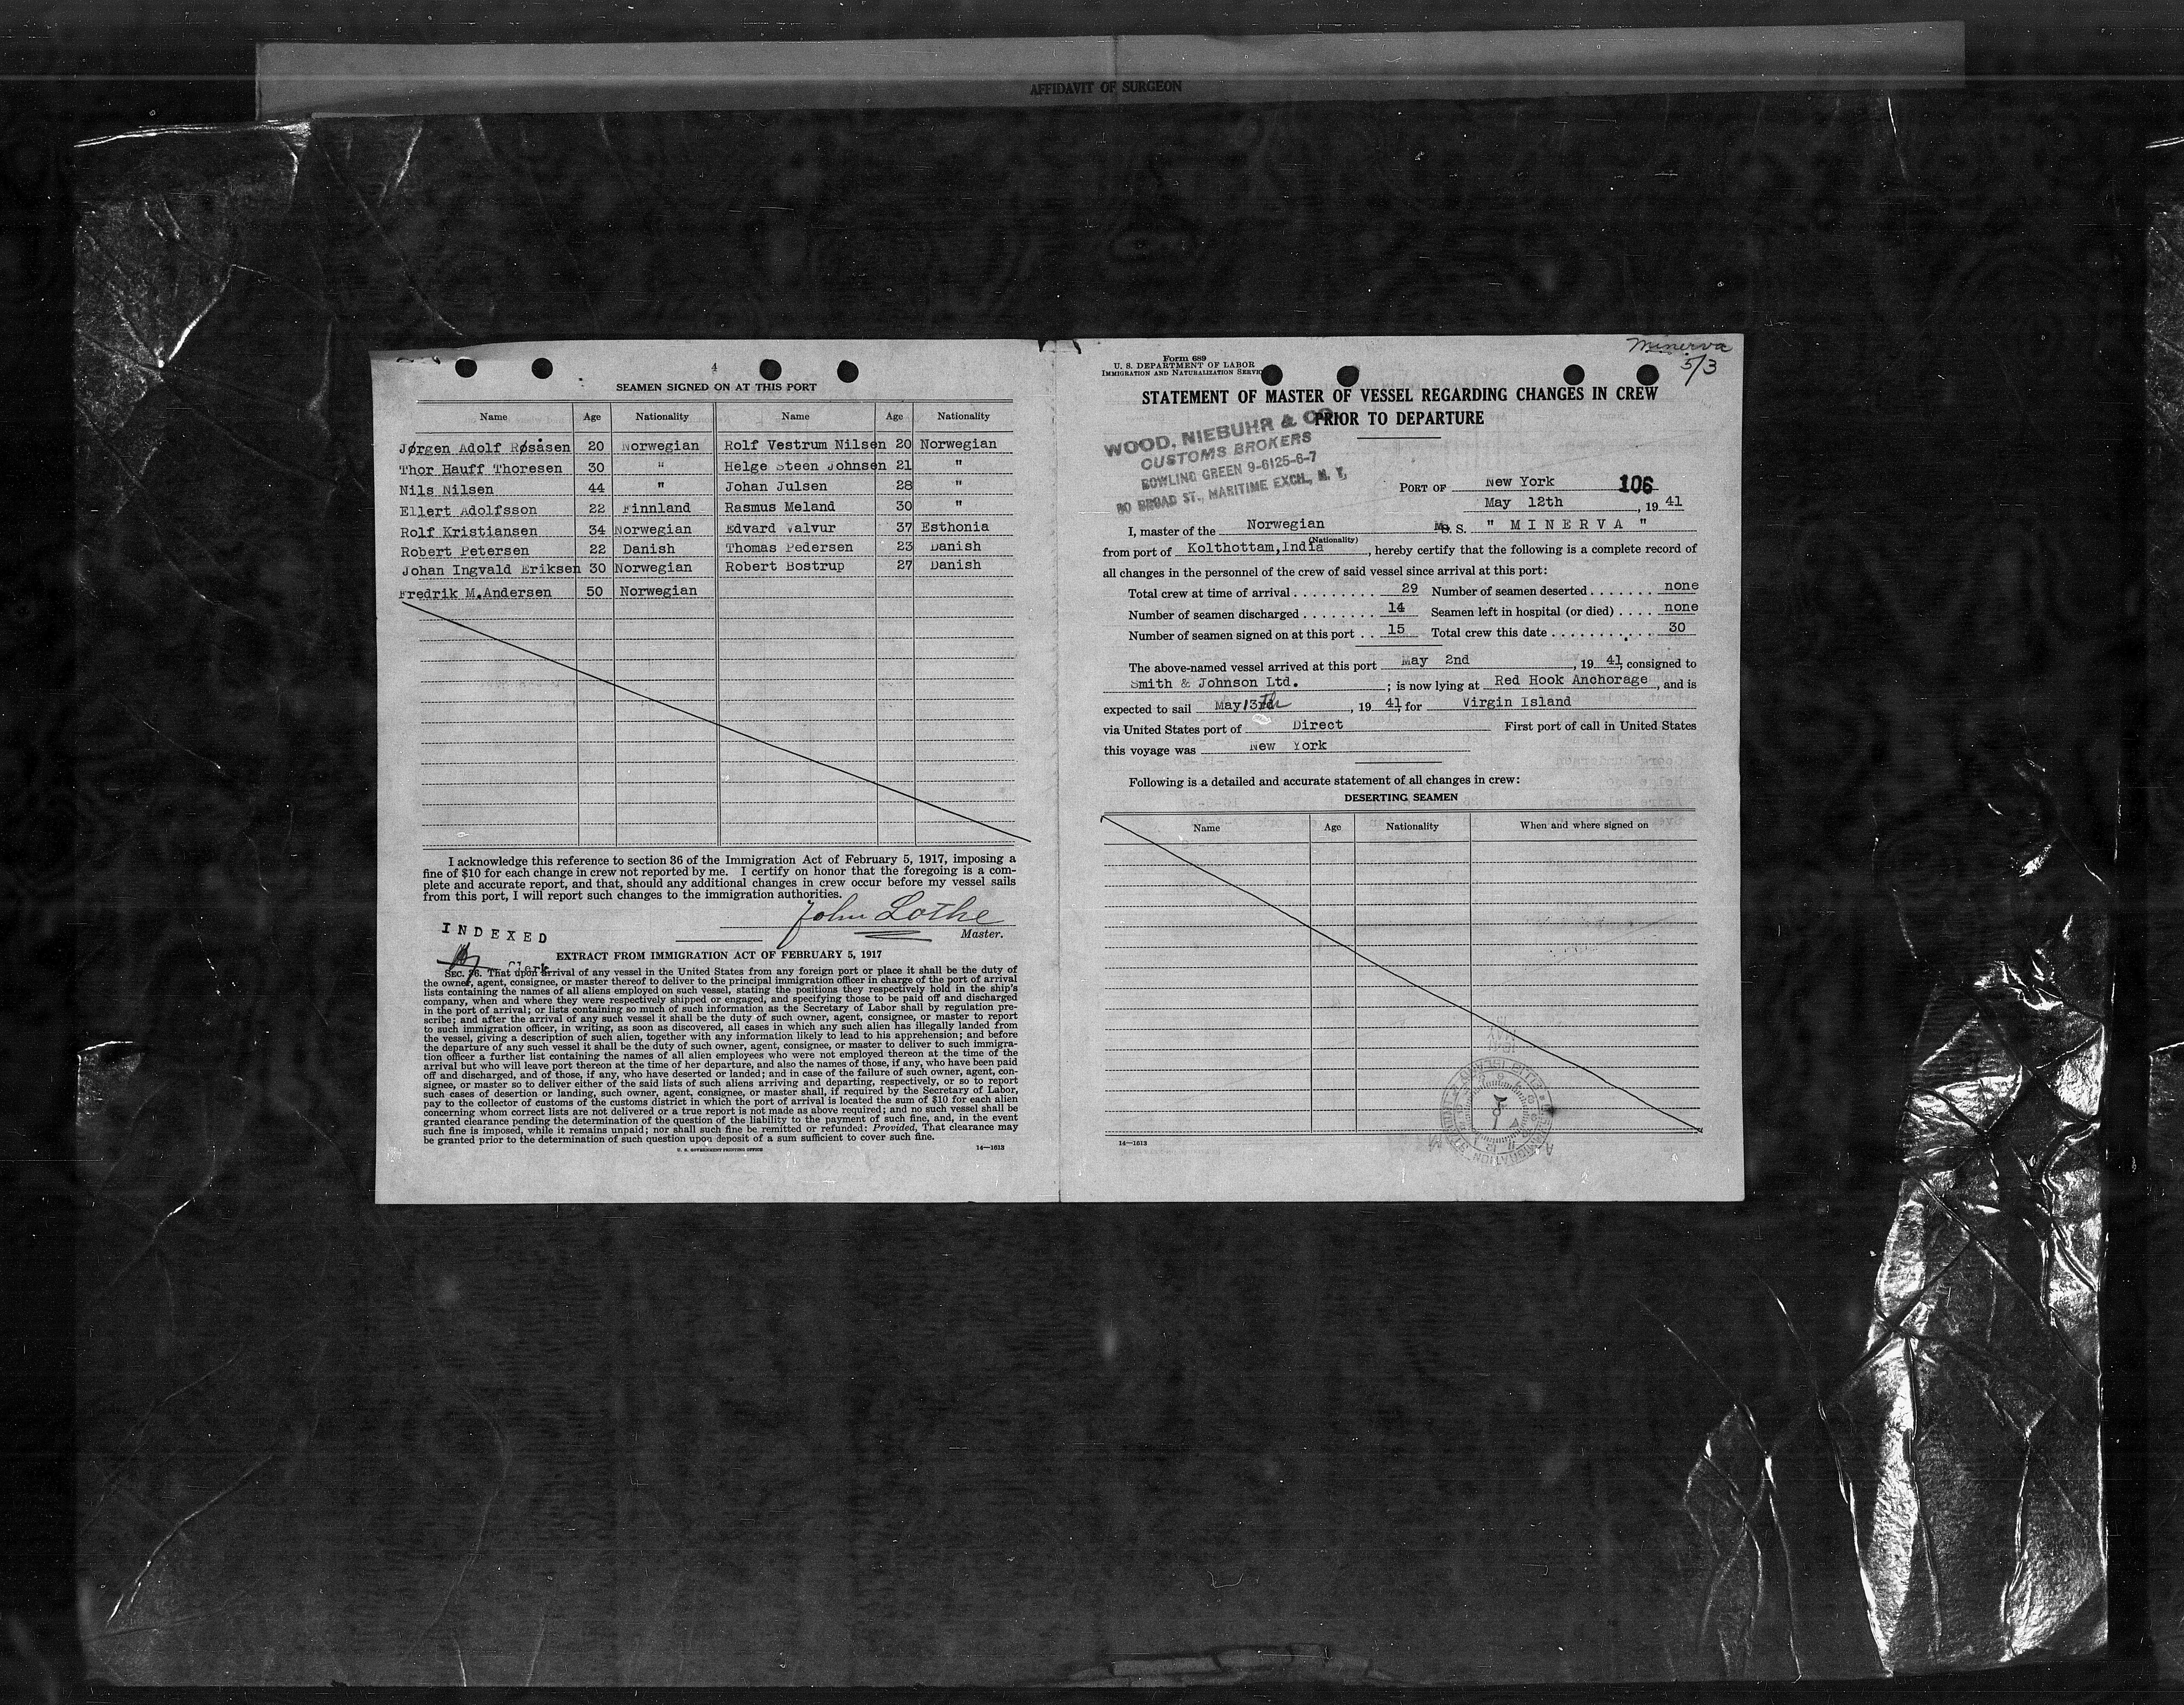 AFFIDAVIT OF SURGEON
4
SEAMEN SIGNED ON AT THIS PORT
Name Age Nationality Name Age Nationality
Jørgen Adolf Røsåsen 20 Norwegian Rolf Vestrum Nilsen 20 Norwegian
Thor Hauff Thoresen 30 " Helge Steen Johnsen 21 "
Nils Nilsen 44 " Johan Julsen 28 "
Ellert Adolfsson 22 Finnland Rasmus Meland 30 "
Rolf Kristiansen 34 Norwegian Edvard Valvur 37 Esthonia
Robert Petersen 22 Danish Thomas Pedersen 23 Danish
Johan Ingvald Eriksen 30 Norwegian Robert Bostrup 27 Danish
Fredrik M.Andersen 50 Norwegian
I acknowledge this reference to section 36 of the Immigration Act of February 5, 1917, imposing a
fine of $10 for each change in crew not reported by me. I certify on honor that the foregoing is a com-
plete and accurate report, and that, should any additional changes in crew occur before my vessel sails
from this port, I will report such changes to the immigration authorities.
John Lothe
Master.
INDEXED
Clerk
EXTRACT FROM IMMIGRATION ACT OF FEBRUARY 5, 1917
SEC. 36. That upon arrival of any vessel in the United States from any foreign port or place it shall be the duty of
the owner, agent, consignee, or master thereof to deliver to the principal immigration officer in charge of the port of arrival
lists containing the names of all aliens employed on such vessel, stating the positions they respectively hold in the ship's
company, when and where they were respectively shipped or engaged, and specifying those to be paid off and discharged
in the port of arrival; or lists containing so much of such information as the Secretary of Labor shall by regulation pre-
scribe; and after the arrival of any such vessel it shall be the duty of such owner, agent, consignee, or master to report
to such immigration officer, in writing, as soon as discovered, all cases in which any such alien has illegally landed from
the vessel, giving a description of such alien, together with any information likely to lead to his apprehension; and before
the departure of any such vessel it shall be the duty of such owner, agent, consignee, or master to deliver to such immigra-
tion officer a further list containing the names of all alien employees who were not employed thereon at the time of the
arrival but who will leave port thereon at the time of her departure, and also the names of those, if any, who have been paid
off and discharged, and of those, if any, who have deserted or landed; and in case of the failure of such owner, agent, con-
signee, or master so to deliver either of the said lists of such aliens arriving and departing, respectively, or so to report
such cases of desertion or landing, such owner, agent, consignee, or master shall, if required by the Secretary of Labor,
pay to the collector of customs of the customs district in which the port of arrival is located the sum of $10 for each alien
concerning whom correct lists are not delivered or a true report is not made as above required; and no such vessel shall be
granted clearance pending the determination of the question of the liability to the payment of such fine, and, in the event
such fine is imposed, while it remains unpaid; nor shall such fine be remitted or refunded: Provided, That clearance may
be granted prior to the determination of such question upon deposit of a sum sufficient to cover such fine.
U. S. GOVERNMENT PRINTING OFFICE 14—1613
Minerva
5/3
Form 689
U. S. DEPARTMENT OF LABOR
IMMIGRATION AND NATURALIZATION SERVICE
STATEMENT OF MASTER OF VESSEL REGARDING CHANGES IN CREW
PRIOR TO DEPARTURE
WOOD, NIEBUHR & CO.
CUSTOMS BROKERS
BOWLING GREEN 9-6125-6-7
80 BROAD ST., MARITIME EXCH., N. Y.
PORT OF New York 106
May 12th, 19 41
I, master of the Norwegian M. S. " M I N E R V A "
(Nationality)
from port of Kolthottam,India, hereby certify that the following is a complete record of
all changes in the personnel of the crew of said vessel since arrival at this port:
Total crew at time of arrival . . . . . . . . . 29 Number of seamen deserted . . . . . . . none
Number of seamen discharged . . . . . . . . 14 Seamen left in hospital (or died) . . . . none
Number of seamen signed on at this port . . 15 Total crew this date . . . . . . . . . . . 30
The above-named vessel arrived at this port May 2nd, 19 41, consigned to
Smith & Johnson Ltd. ; is now lying at Red Hook Anchorage, and is
expected to sail May 13th, 19 41, for Virgin Island
via United States port of Direct First port of call in United States
this voyage was New York
Following is a detailed and accurate statement of all changes in crew:
DESERTING SEAMEN
Name Age Nationality When and where signed on
14—1613